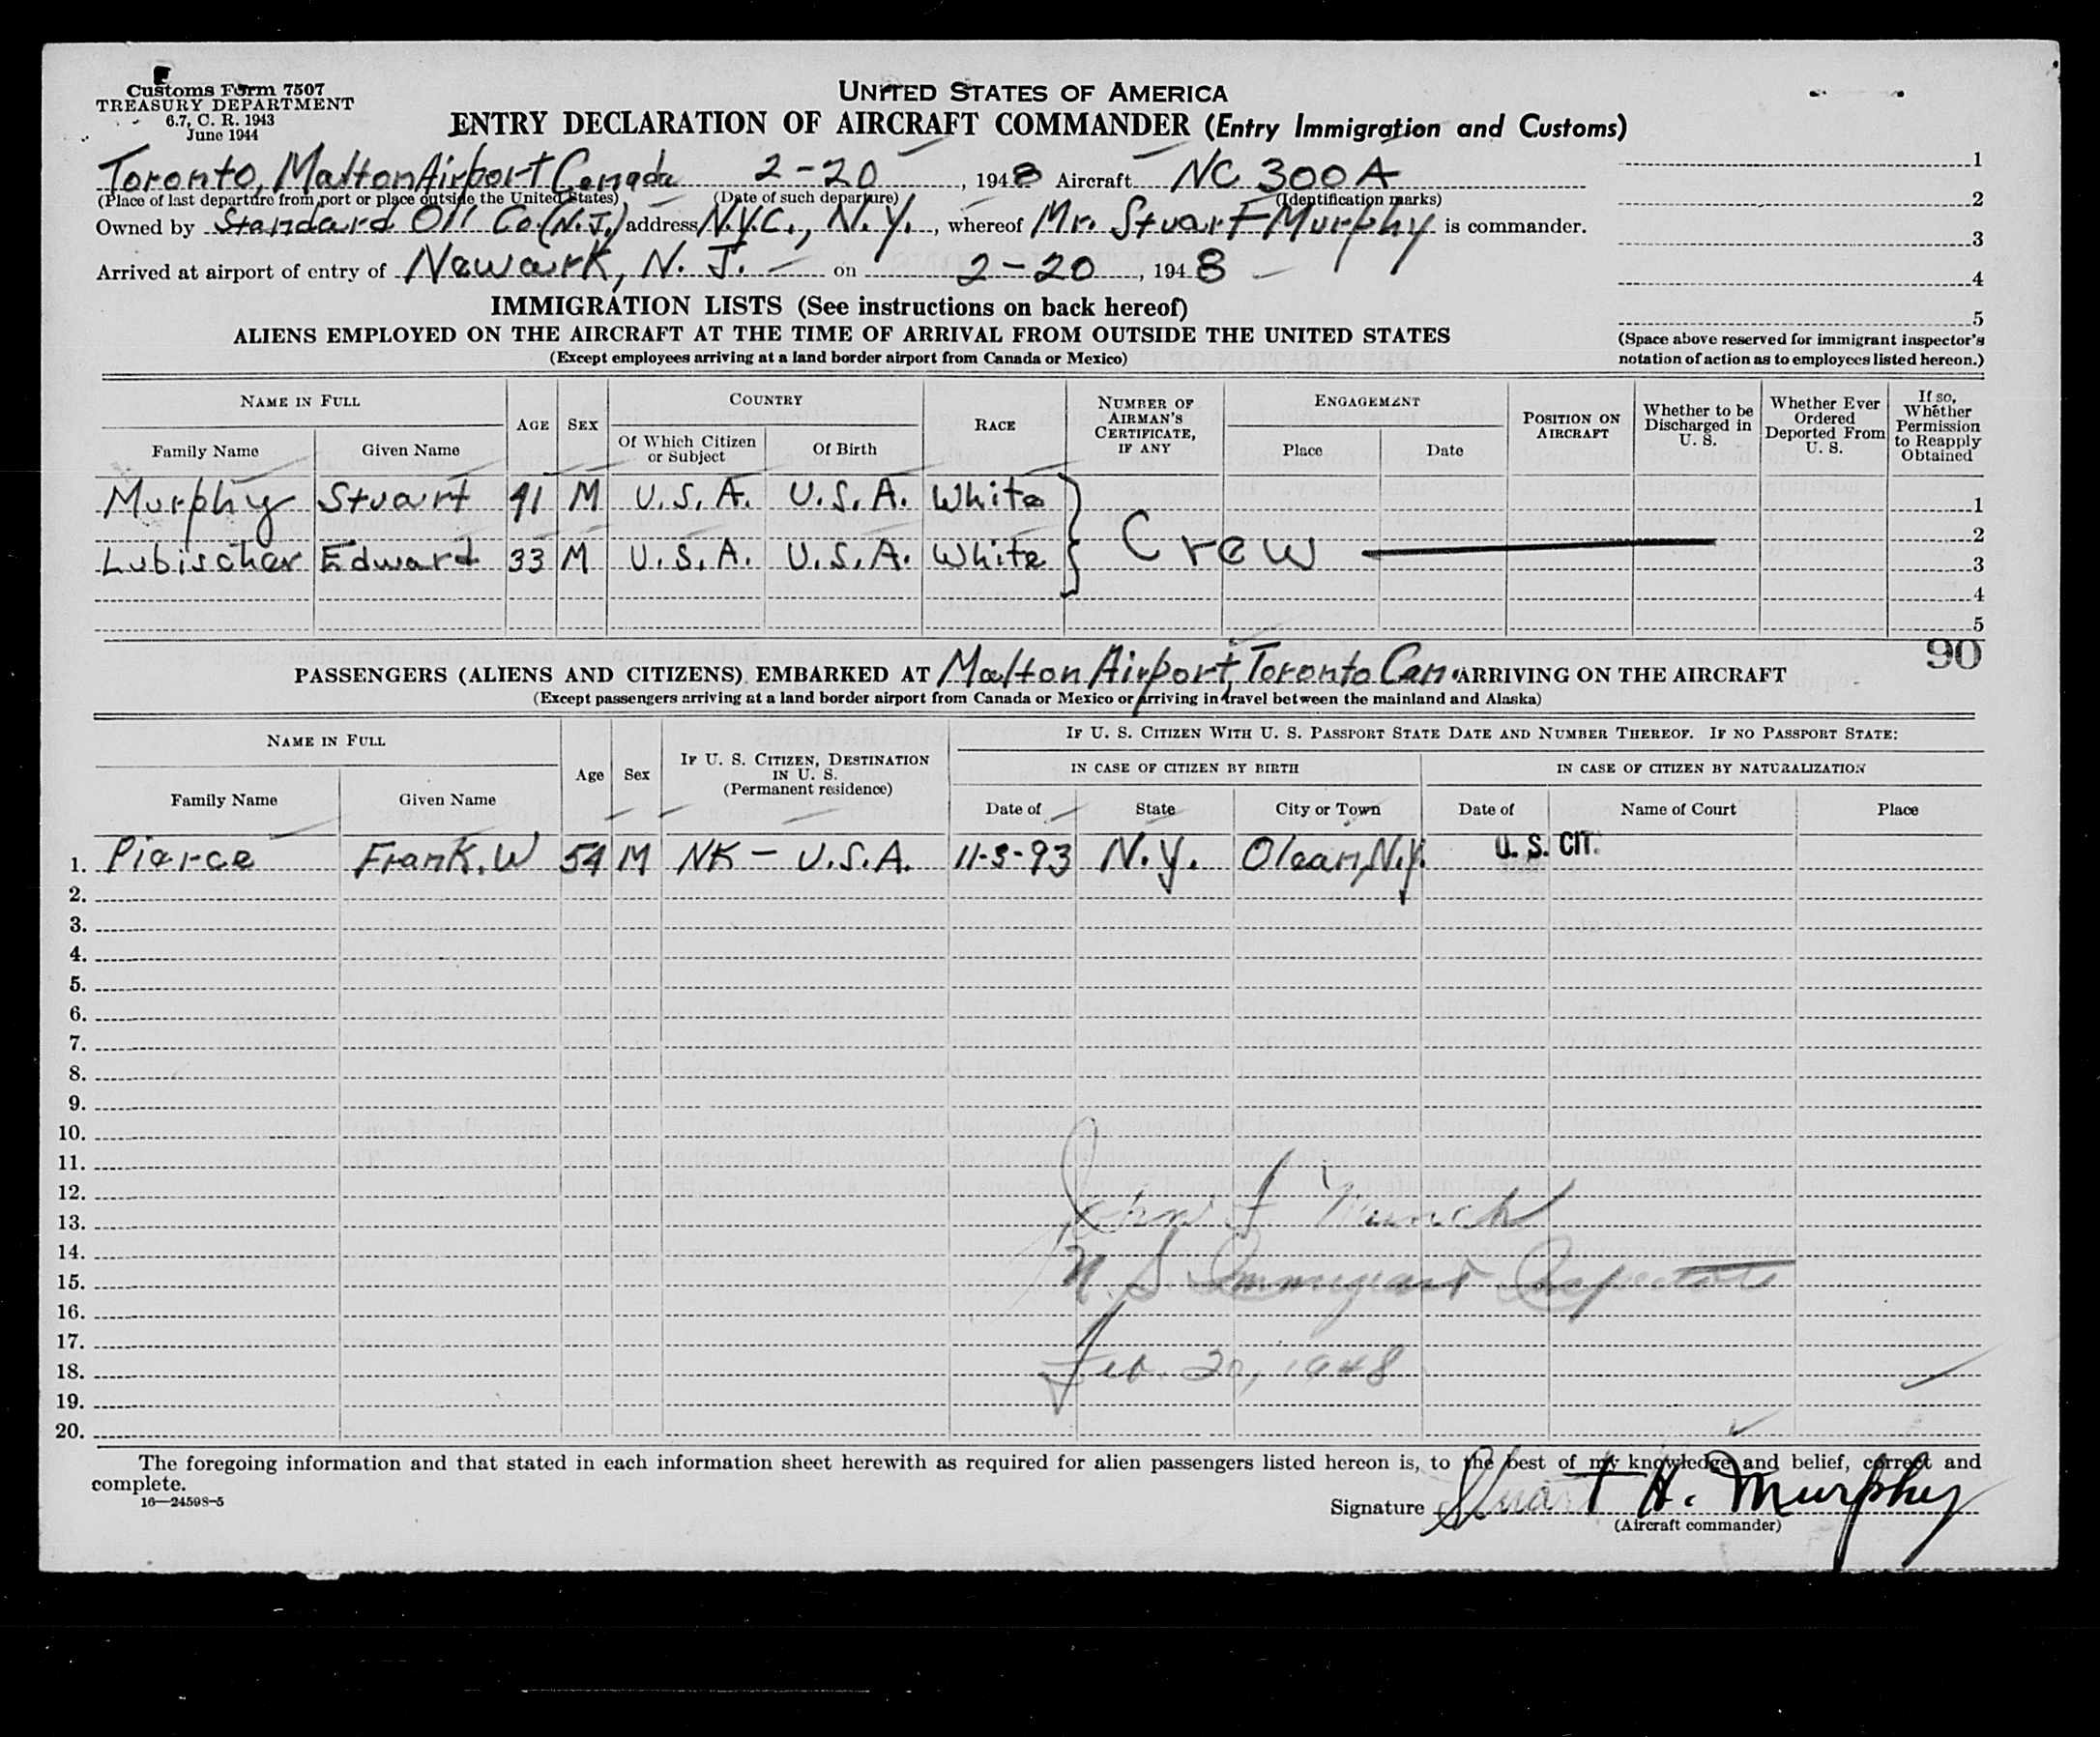 Customs Form 7507
TREASURY DEPARTMENT
6.7, C. R. 1943
June 1944
UNITED STATES OF AMERICA
ENTRY DECLARATION OF AIRCRAFT COMMANDER (Entry Immigration and Customs)
Toronto, Malton Airport Canada 2-20, 1948 Aircraft NC 300A
(Place of last departure from port or place outside the United States) (Date of such departure) (Identification marks)
Owned by Standard Oil Co (N.J.) address N.Y.C., N.Y., whereof Mr. Stuart Murphy is commander.
Arrived at airport of entry of Newark, N. J. on 2-20, 1948
1
2
3
4
5
(Space above reserved for immigrant inspector's
notation of action as to employees listed hereon.)
IMMIGRATION LISTS (See instructions on back hereof)
ALIENS EMPLOYED ON THE AIRCRAFT AT THE TIME OF ARRIVAL FROM OUTSIDE THE UNITED STATES
(Except employees arriving at a land border airport from Canada or Mexico)
NAME IN FULL
Family Name Given Name
AGE SEX
COUNTRY
Of Which Citizen
or Subject
Of Birth
RACE
NUMBER OF
AIRMAN'S
CERTIFICATE,
IF ANY
ENGAGEMENT
Place Date
POSITION ON
AIRCRAFT
Whether to be
Discharged in
U. S.
Whether Ever
Ordered
Deported From
U. S.
If so,
Whether
Permission
to Reapply
Obtained
Murphy Stuart 41 M U.S.A. U.S.A. White 1
2
Lubischer Edward 33 M U.S.A. U.S.A. White Crew 3
4
5
90
PASSENGERS (ALIENS AND CITIZENS) EMBARKED AT Malton Airport, Toronto Can. ARRIVING ON THE AIRCRAFT
(Except passengers arriving at a land border airport from Canada or Mexico or arriving in travel between the mainland and Alaska)
NAME IN FULL
Family Name Given Name
Age Sex
IF U. S. CITIZEN, DESTINATION
IN U. S.
(Permanent residence)
IF U. S. CITIZEN WITH U. S. PASSPORT STATE DATE AND NUMBER THEREOF. IF NO PASSPORT STATE:
IN CASE OF CITIZEN BY BIRTH IN CASE OF CITIZEN BY NATURALIZATION
Date of State City or Town Date of Name of Court Place
1. Pierce Frank. W 54 M NK - U.S.A. 11-3-93 N.Y. Olean, N.Y. U. S. CIT.
2.
3.
4.
5.
6.
7.
8.
9.
10.
11.
12.
13. John F. Munch
14.
15. U. S. Immigrant Inspector
16.
17.
18. Feb. 20, 1948
19.
20.
The foregoing information and that stated in each information sheet herewith as required for alien passengers listed hereon is, to the best of my knowledge and belief, correct and
complete.
16—24598-5
Signature Stuart H. Murphy
(Aircraft commander)